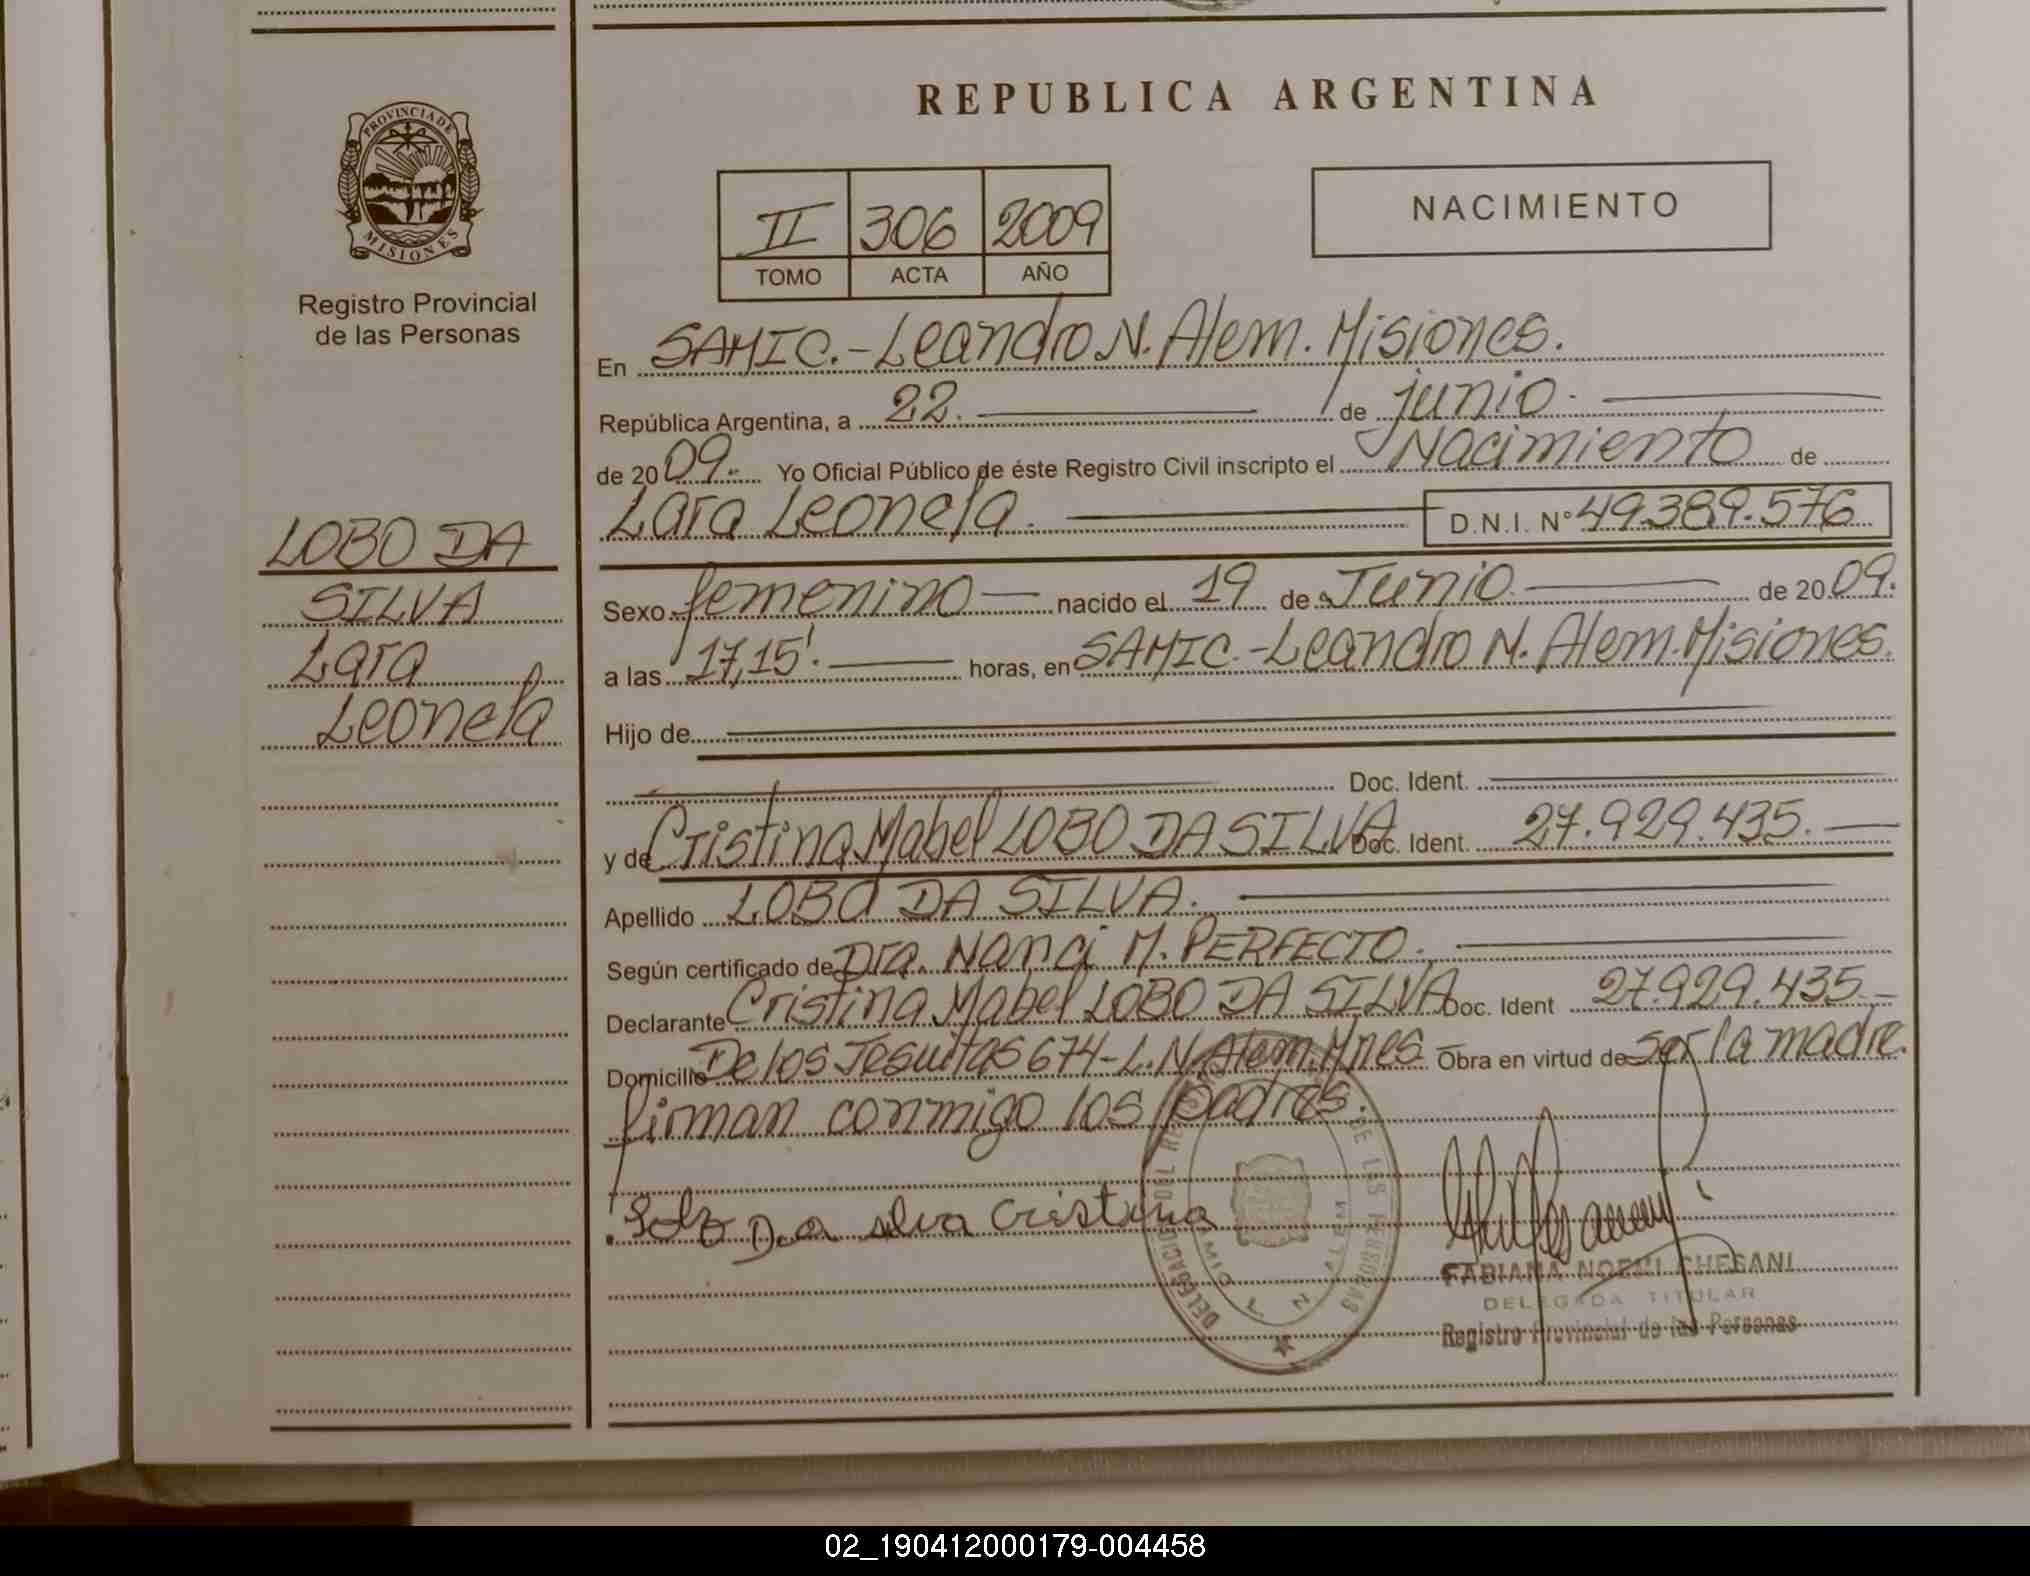 REPUBLICA ARGENTINA
PROVINCIA DE
MISIONES
Registro Provincial
de las Personas
II 306 2009
TOMO ACTA AÑO
NACIMIENTO
LOBO DA
SILVA
Lara
Leonela
En SAMIC.-Leandro N. Alem. Misiones.
República Argentina, a 22. de junio.
de 2009. Yo Oficial Público de éste Registro Civil inscripto el Nacimiento de
Lara Leonela. D.N.I. N° 49.389.576
Sexo femenino nacido el 19 de Junio de 2009.
a las 17,15'. horas, en SAMIC.-Leandro N. Alem. Misiones.
Hijo de
Doc. Ident.
y de Cristina Mabel LOBO DA SILVA Doc. Ident. 27.929.435.
Apellido LOBO DA SILVA.
Según certificado de Dra. Nanci M. PERFECTO.
Declarante Cristina Mabel LOBO DA SILVA Doc. Ident 27.929.435.-
Domicilio De los Jesuitas 674-L.N.Alem.Mnes. Obra en virtud de ser la madre.
firman conmigo los padres.
Lobo Da silva Cristina
FABIANA NOEMI CHESANI
DELEGADA TITULAR
Registro Provincial de las Personas
02_190412000179-004458